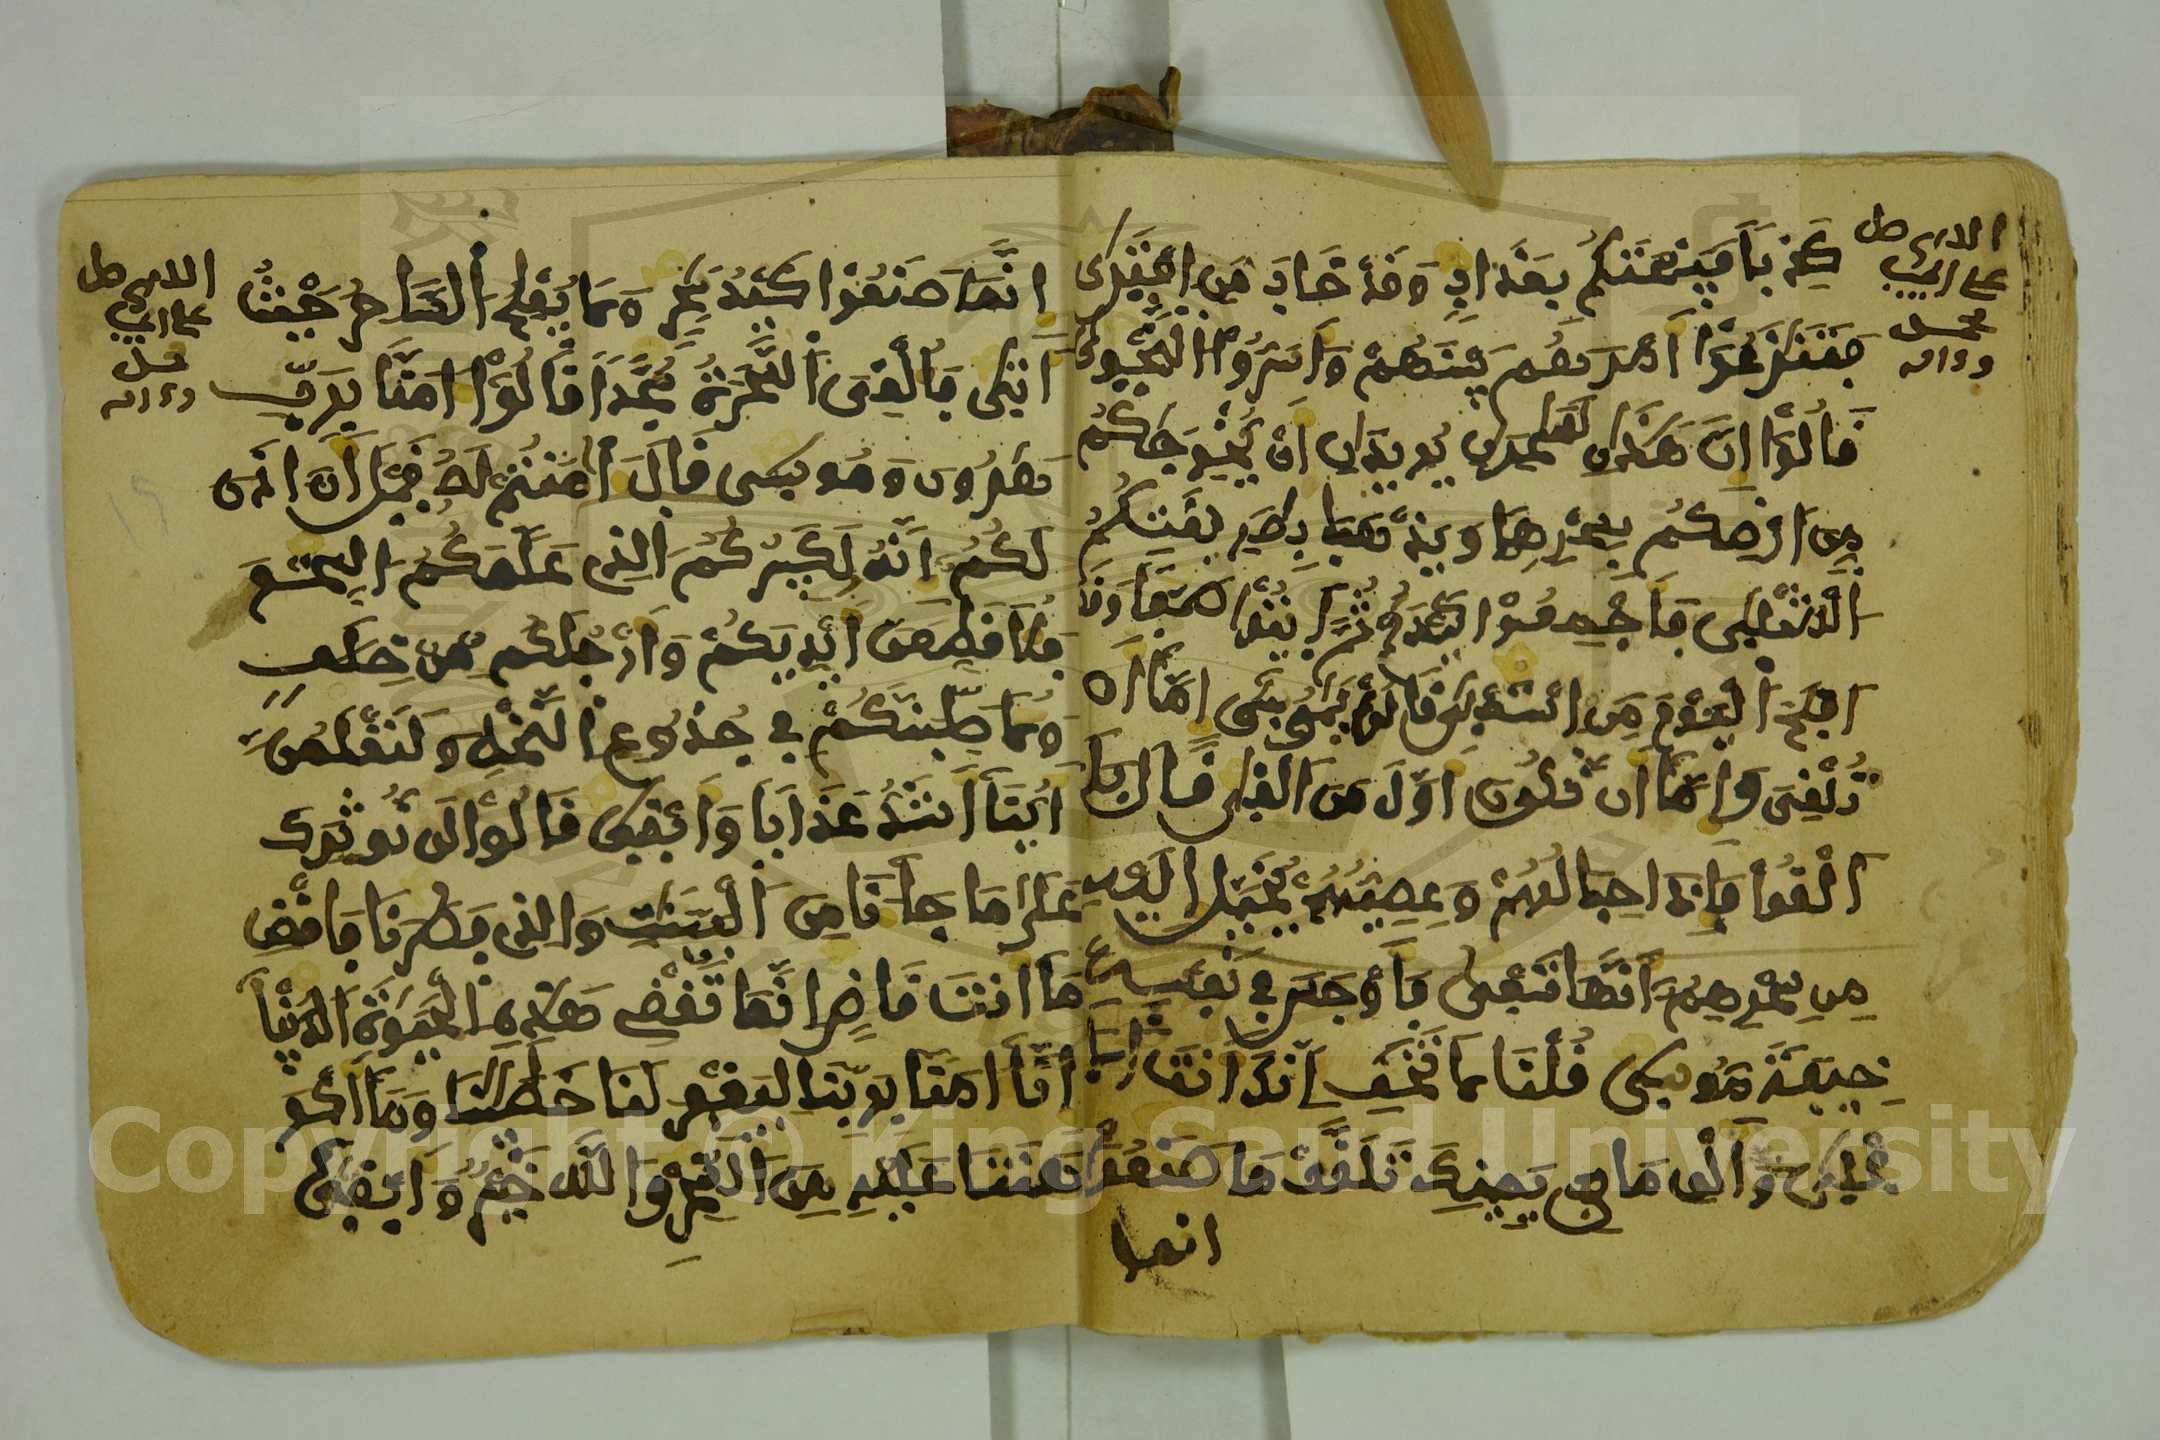 كذبا فيسحتكم بعذاب وقد خاب من افترى
فتنزعوا امرهم بينهم واسروا النجوى
قالوا ان هذن لسحرن يريدن ان يخرجكم
من ارضكم بسحرهما ويذهبا بطريقتكم
المثلى فاجمعوا كيدكم ثم ايتوا صفا وقد
افلح اليوم من استعلى قالوا يموسى اما ان
تلقى واما ان نكون اول من القى قال بل
القوا فاذا حبالهم وعصيهم يخيل اليه
من سحرهم انها تسعى فاوجس في نفسه
خيفة موسى قلنا لا تخف انك انت الا
على والق ما في يمينك تلقف ما صنعوا
انما
اللهم صل
على
محمد
واله
انما صنعوا كيد سحر ولا يفلح الساحر حيث
اتى فالقى السحرة سجدا قالوا امنا برب
هرون وموسى قال امنتم له قبل ان اذن
لكم انه لكبيركم الذي علمكم السحر
فلاقطعن ايديكم وارجلكم من خلف
ولاصلبنكم في جذوع النخل ولتعلمن
اينا اشد عذابا وابقى قالوا لن نوثرك
على ما جانا من البينت والذي فطرنا فاقض
ما انت قاض انما تقضي هذه الحيوة الدنيا
انا امنا بربنا ليغفر لنا خطينا وما اكر
هتنا عليه من السحر والله خير وابقى
اللهم صل
على
واله
Copyright © King Saud University